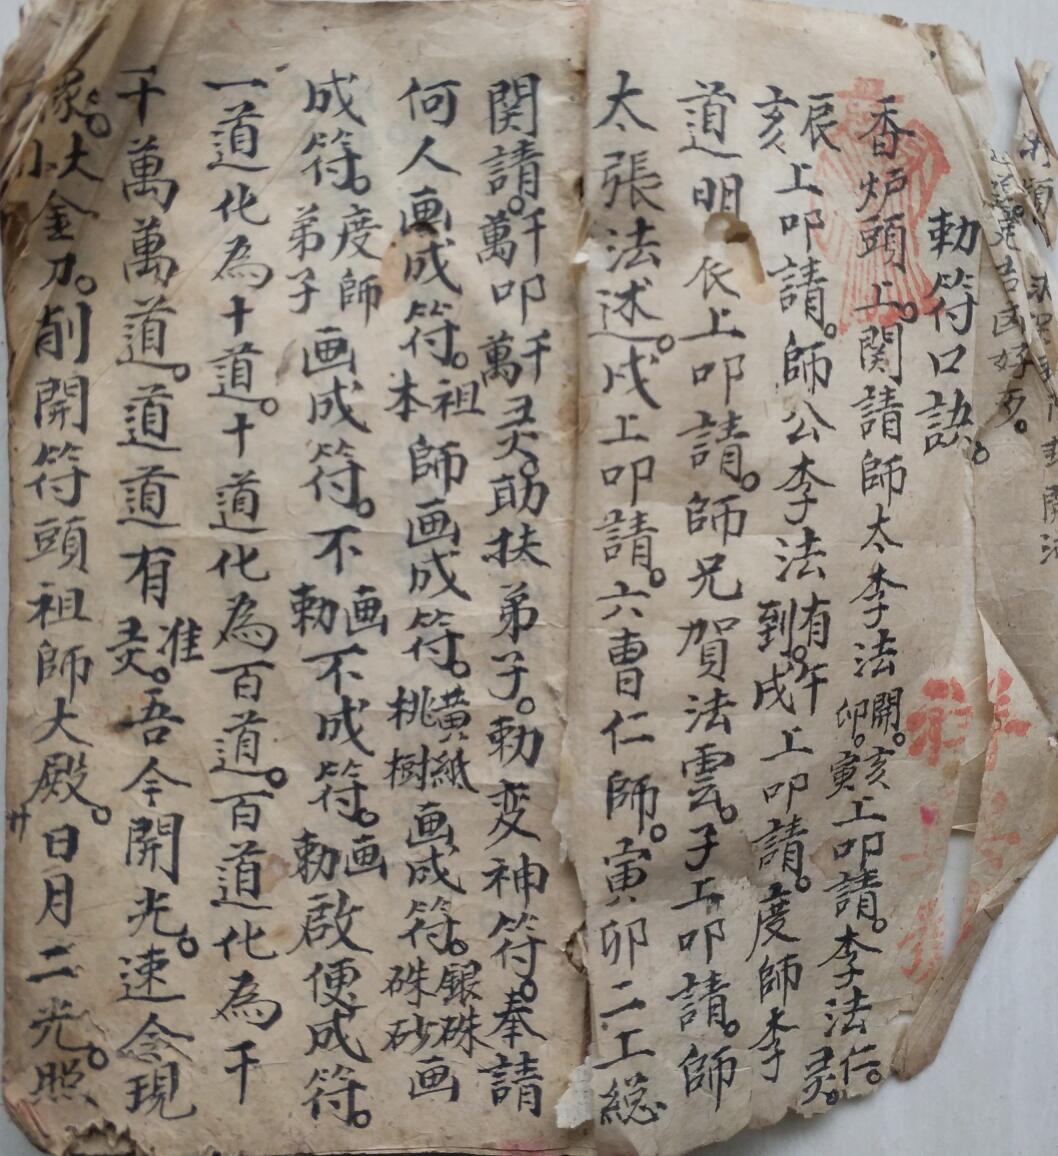 勅符口訣。
香炉頭上。関請師太李法開。亥卯。寅上叩請。李法仁。灵。
辰亥上叩請。師公李法有到。午戌上叩請。度師李
道明辰上叩請。師兄賀法雲。子上叩請。師
太張法述。戌上叩請。六曹仁師。寅卯二工総
関請。千萬叩千萬灵。助扶弟子。勅变神符。奉請
何人画成符。祖本師画成符。黃紙桃樹画成符。銀硃硃砂画
成符。度師弟子画成符。不画勅不成符。画勅啟便成符。
一道化為十道。十道化為百道。百道化為千
千萬萬道。道道有准灵。吾今開光。速令現
大小金刀。削開符頭祖師大殿。日月二光。照